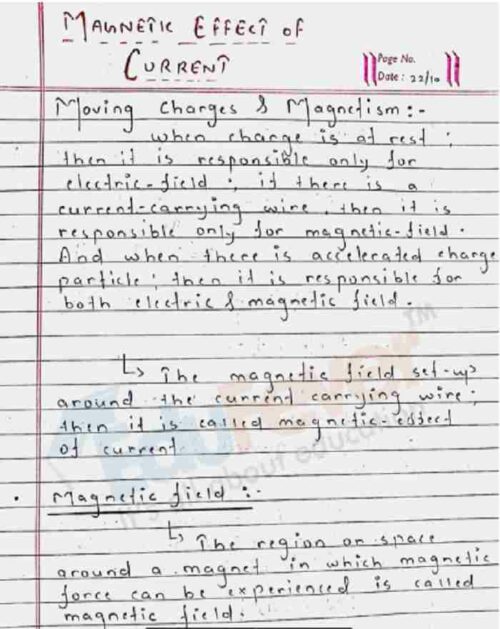 MAGNETIC EFFECT OF
CURRENT
Page No.
Date: 22/10
Moving Charges & Magnetism:-
when charge is at rest;
then it is responsible only for
electric-field; if there is a
current-carrying wire, then it is
responsible only for magnetic-field.
And when there is accelerated charge
particle; then it is responsible for
both electric & magnetic field.
↳ The magnetic field set-up
around the current carrying wire;
then it is called magnetic-effect
of current.
• Magnetic field:-
↳ The region or space
around a magnet in which magnetic
force can be experienced is called
magnetic field.
EduFever™
It's all about education